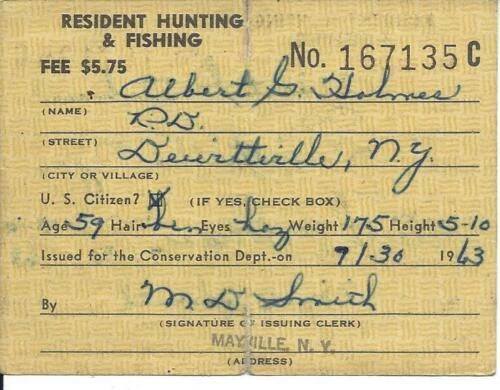 RESIDENT HUNTING
& FISHING
FEE $5.75
No. 167135 C
Albert G. Holmes
(NAME)
R.D.
(STREET)
Dewittville, N.Y.
(CITY OR VILLAGE)
U. S. Citizen? (IF YES, CHECK BOX)
Age 59 Hair Eyes haz Weight 175 Height 5-10
Issued for the Conservation Dept.-on 9/30 1963
By M D Smith
(SIGNATURE OF ISSUING CLERK)
MAYVILLE, N. Y.
(ADDRESS)